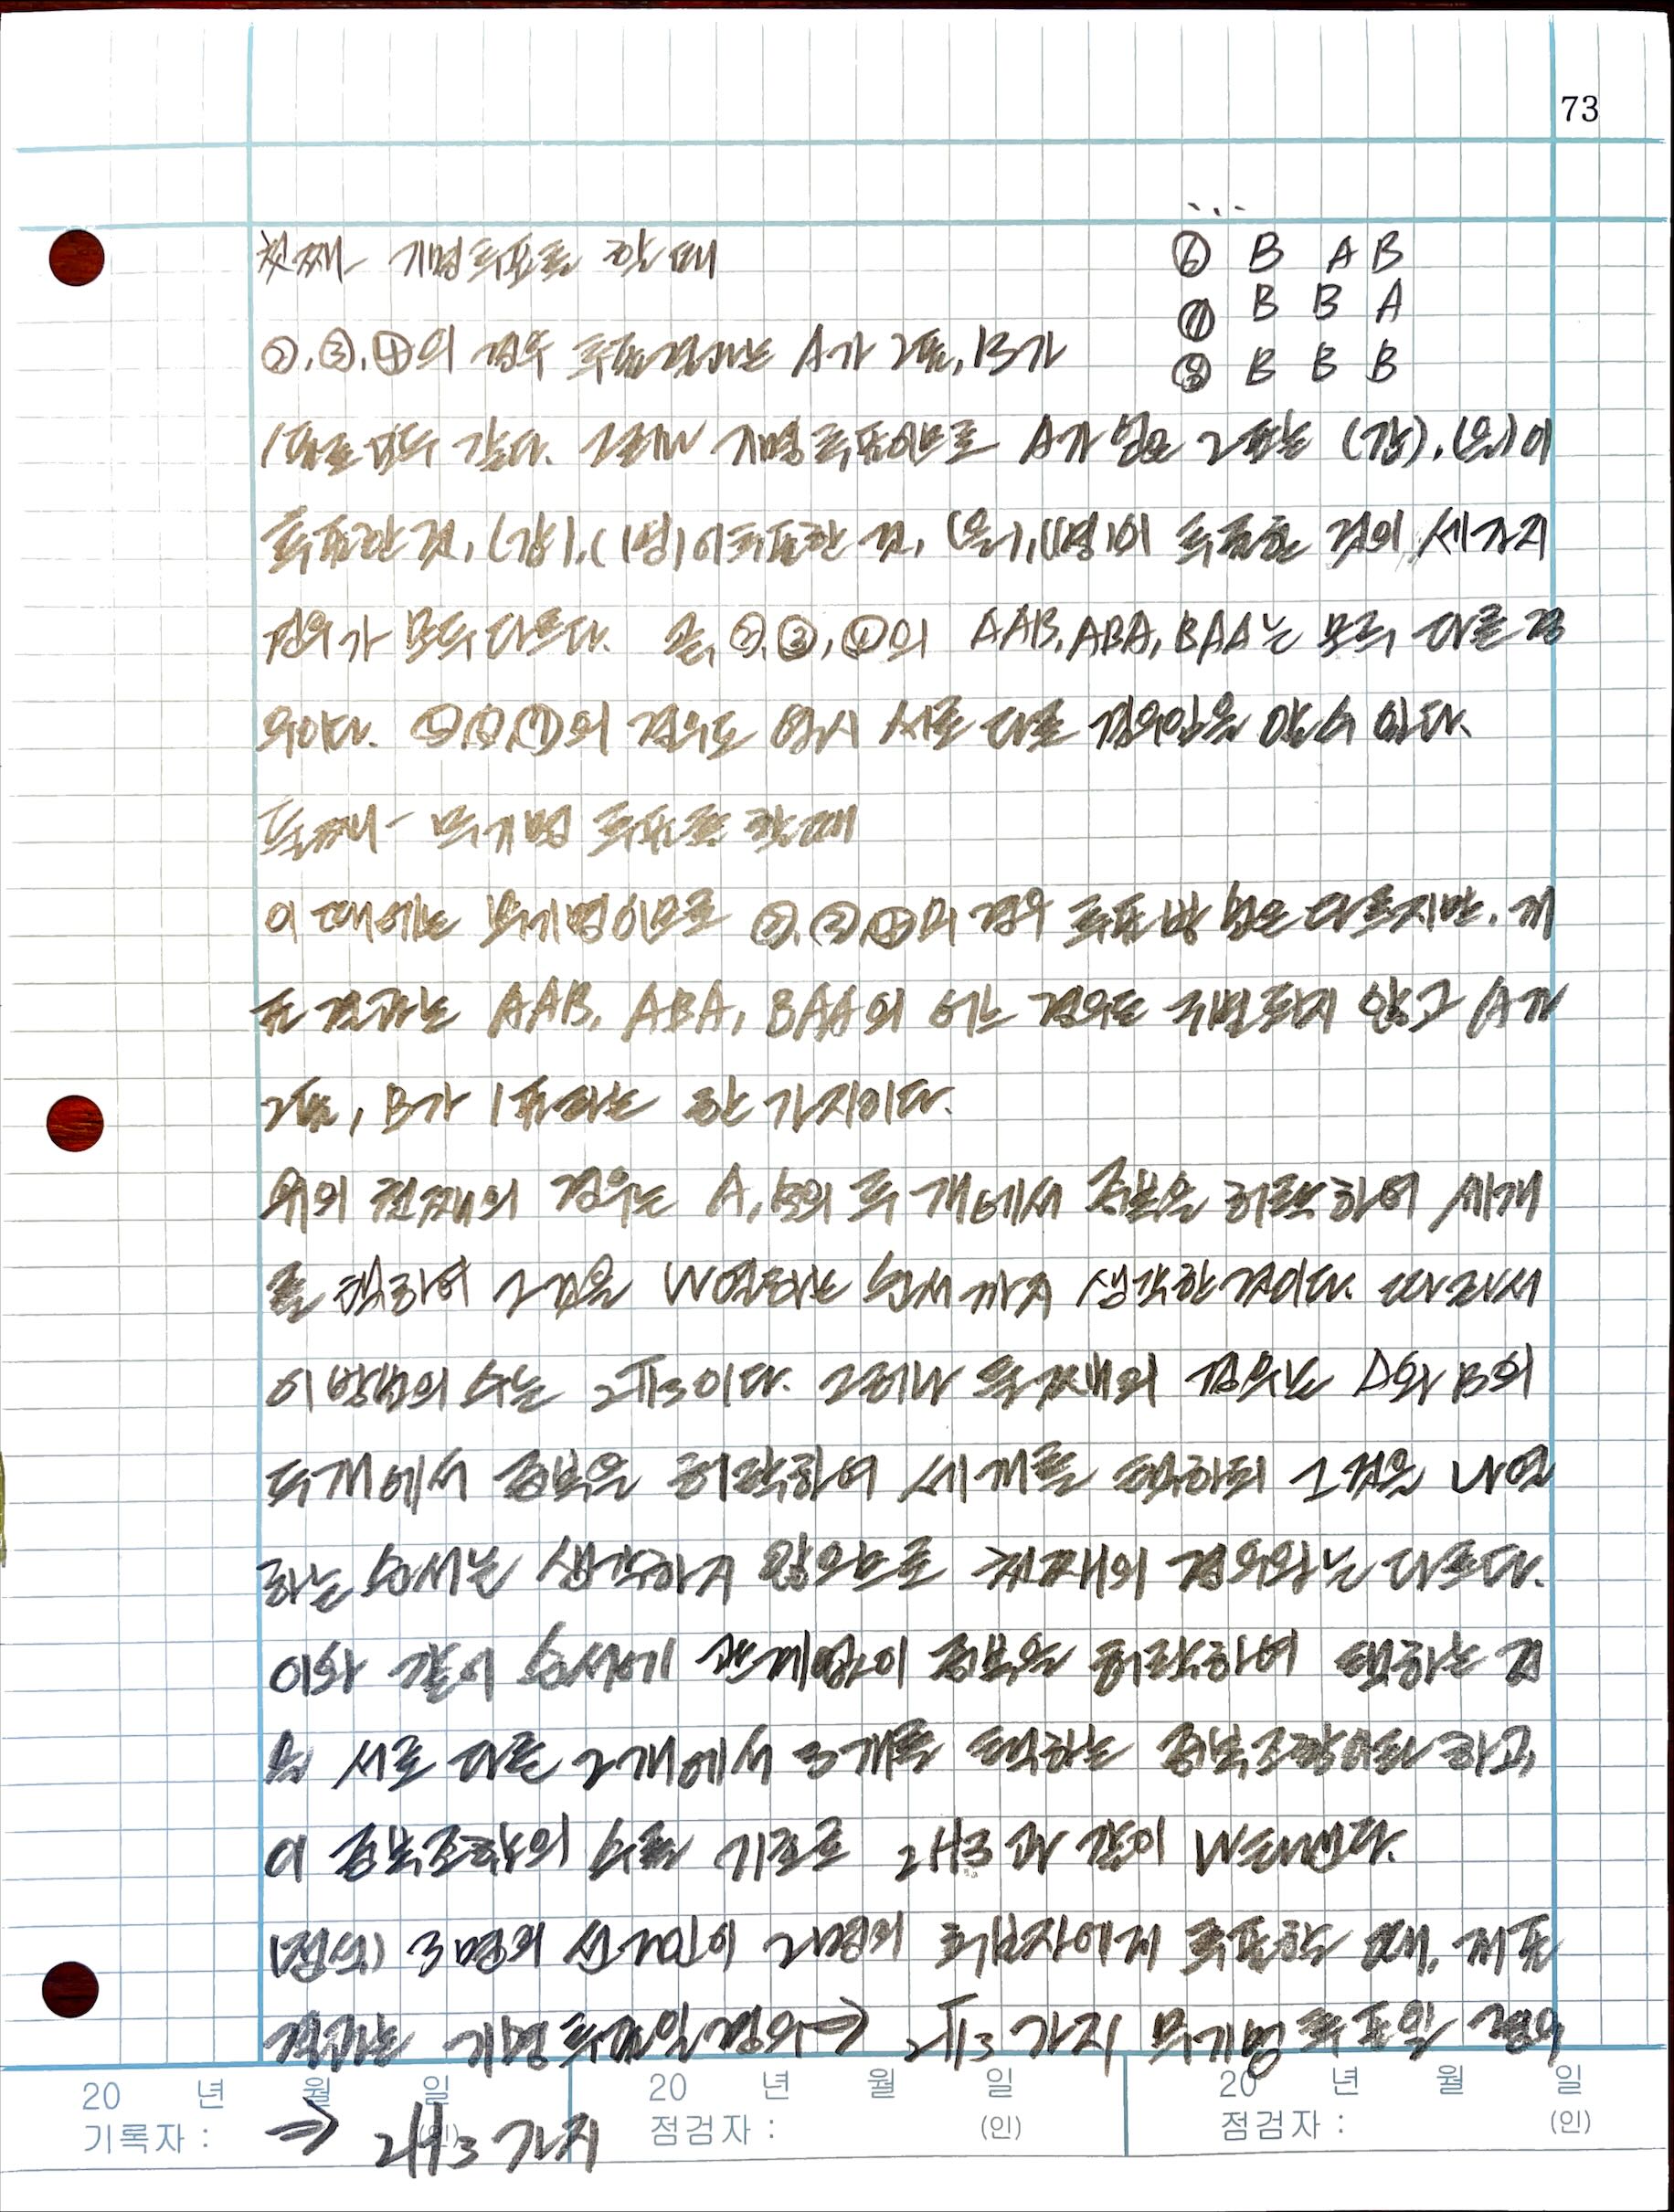 73
...
첫째- 기명투표를 할 때
⑥ B A B
⑦ B B A
②, ③, ④의 경우 투표결과는 A가 2표, B가
⑧ B B B
1표로 모두 같다. 그러나 기명투표이므로 A가 얻은 2표는 (갑), (을)이
투표한 것, (갑), (병)이 투표한 것, (을), (병)이 투표한 것의 세가지
경우가 모두 다르다. 곧, ②, ③, ④의 AAB, ABA, BAA는 모두 다른 경
우이다. ⑤, ⑥, ⑦의 경우도 역시 서로 다른 경우임을 알 수 있다.
둘째- 무기명 투표를 할 때
이 때에는 무기명이므로 ②, ③, ④의 경우 투표 방법은 다르지만, 개
표 결과는 AAB, ABA, BAA의 어느 경우도 구별되지 않고 A가
2표, B가 1표라는 한 가지이다.
위의 첫째의 경우는 A, B의 두 개에서 중복을 허락하여 세개
를 택하여 그것을 나열하는 순서까지 생각한 것이다. 따라서
이 방법의 수는 ₂∏₃이다. 그러나 둘째의 경우는 A와 B의
두개에서 중복을 허락하여 세개를 택하되 그것을 나열
하는 순서는 생각하지 않으므로 첫째의 경우와는 다르다.
이와 같이 순서에 관계없이 중복을 허락하여 택하는 것
을 서로 다른 2개에서 3개를 택하는 중복조합이라 하고,
이 중복조합의 수를 기호로 ₂H₃과 같이 나타낸다.
(정의) 3명의 선거인이 2명의 후보자에게 투표할 때, 개표
결과는 기명 투표일 경우 ⇒ ₂∏₃ 가지 무기명 투표일 경우
⇒ ₂H₃ 가지
20 년 월 일 20 년 월 일 20 년 월 일
기록자 : (인) 점검자 : (인) 점검자 : (인)